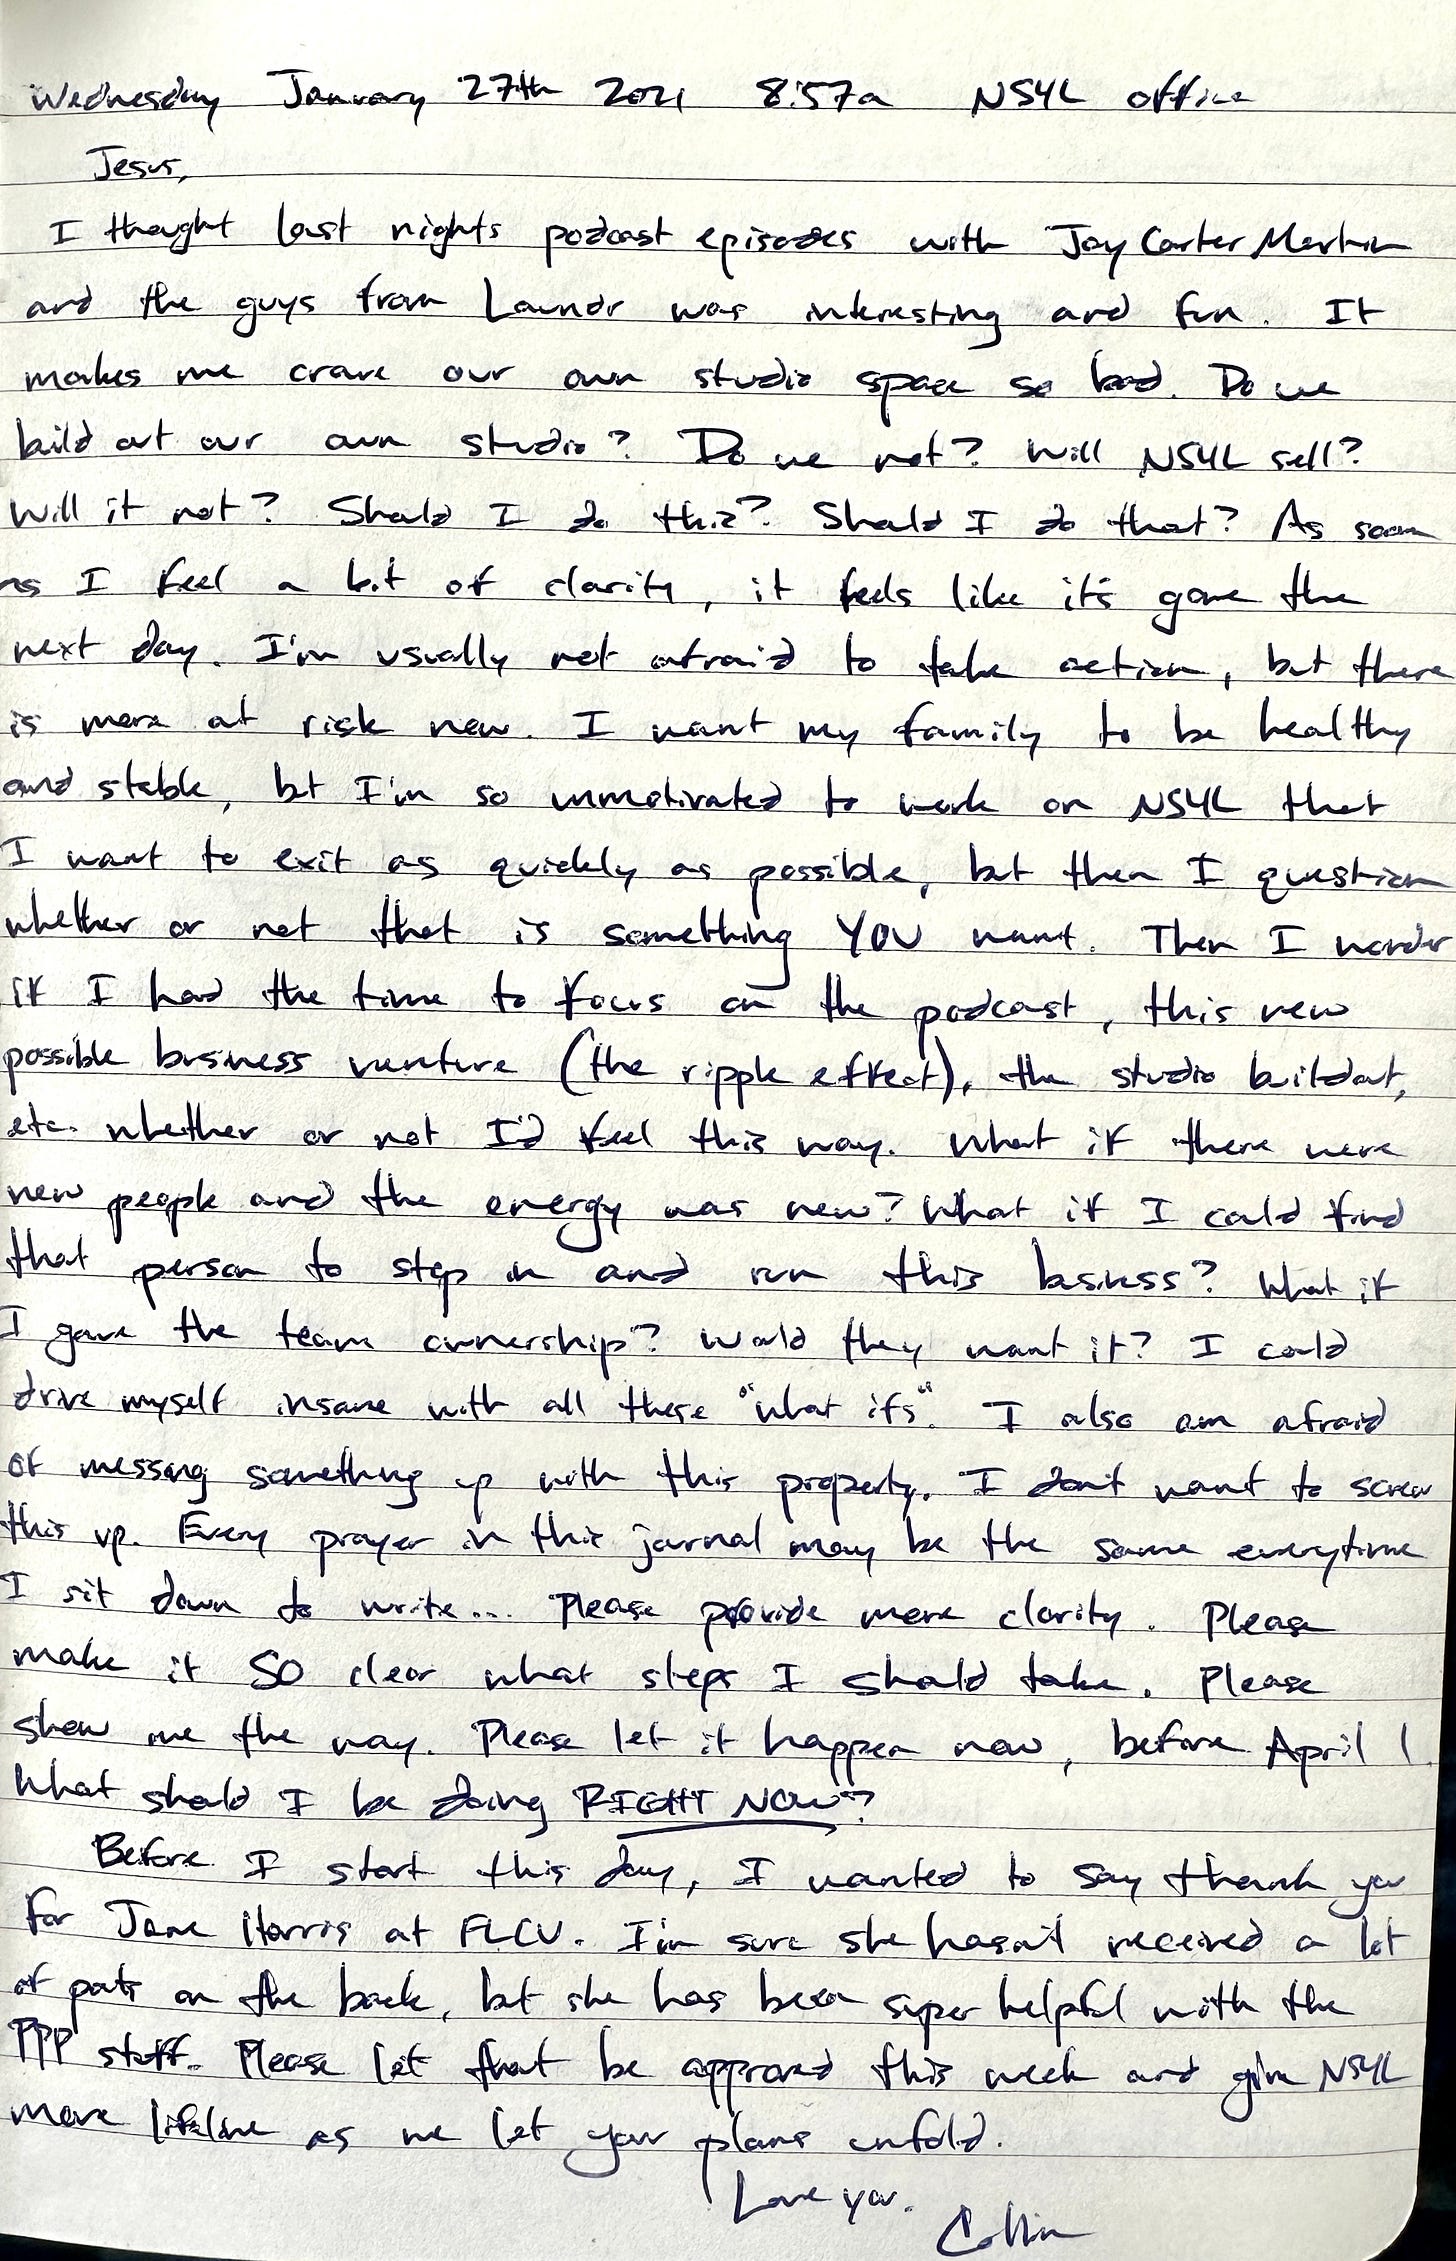 Wednesday January 27th 2021 8:57a NSYL office
Jesus,
I thought last nights podcast episodes with Jay Carter
and the guys from Laundr was interesting and fun. It
makes me crave our own studio space so bad. Do we
build out our own studio? Do we not? Will NSYL sell?
Will it not? Should I do this? Should I do that? As soon
as I feel a bit of clarity, it feels like it's gone the
next day. I'm usually not afraid to take action, but there
is more at risk now. I want my family to be healthy
and stable, but I'm so unmotivated to work on NSYL that
I want to exit as quickly as possible, but then I question
whether or not that is something YOU want. Then I wonder
if I had the time to focus on the podcast, this new
possible business venture (the ripple effect), the studio buildout,
etc. whether or not I'd feel this way. What if there were
new people and the energy was new? What if I could find
that person to step in and run this business? What if
I gave the team ownership? Would they want it? I could
drive myself insane with all these "what ifs". I also am afraid
of messing something up with this property. I don't want to screw
this up. Every prayer in this journal may be the same everytime
I sit down to write... Please provide more clarity. Please
make it SO clear what steps I should take. Please
show me the way. Please let it happen now, before April 1.
What should I be doing RIGHT NOW?
Before I start this day, I wanted to say thank you
for Jane Harris at FLCU. I'm sure she hasn't received a lot
of pats on the back, but she has been super helpful with the
PPP stuff. Please let that be approved this week and give NSYL
more lifeline as we let your plans unfold.
Love you.
Collin